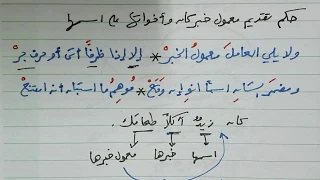 حكم تقديم معمول خبر كان وأخواتها على اسمها
ولا يلي العاملَ معمولُ الخبرْ * إلا إذا ظرفًا أتى أو حرف جرْ
ومضمرَ الشانِ اسمًا انوِ إن وقعْ * مُوهِمُ ما استبان أنه امتنعْ
كان زيدٌ آكلًا طعامَك.
اسمها خبرها معمول خبرها